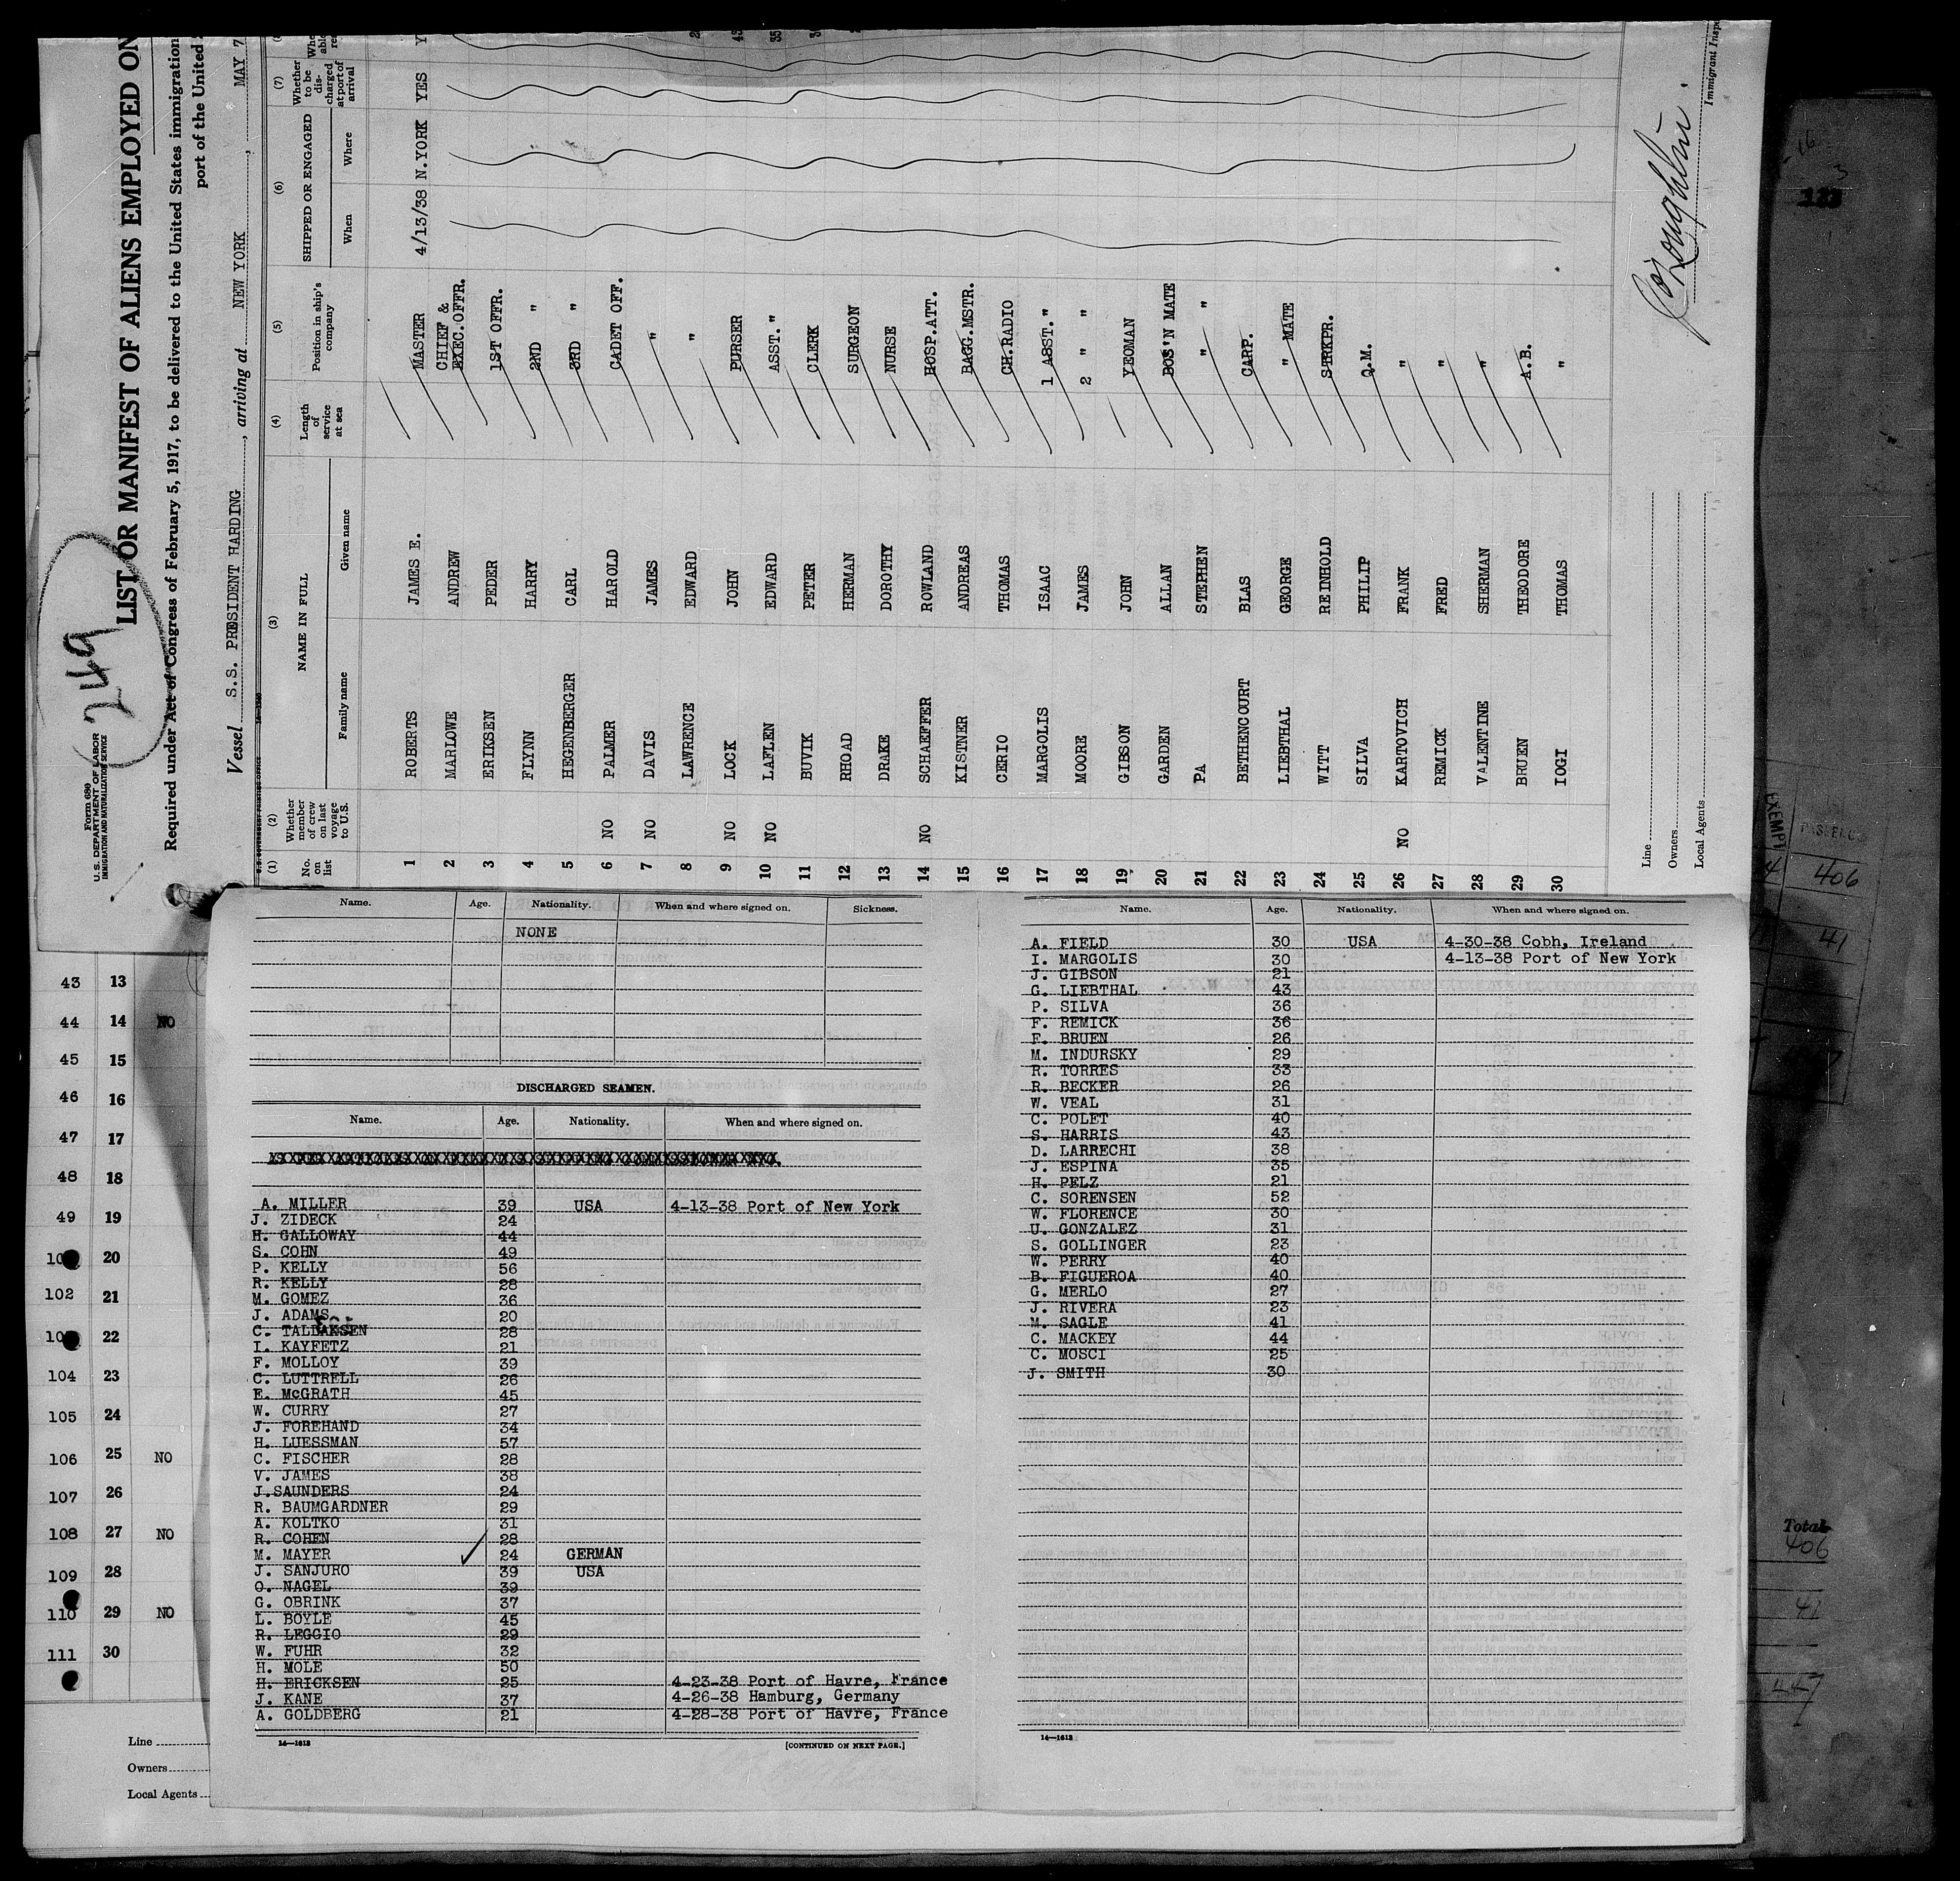 249
Form 680
U. S. DEPARTMENT OF LABOR
IMMIGRATION AND NATURALIZATION SERVICE
LIST OR MANIFEST OF ALIENS EMPLOYED ON
Required under Act of Congress of February 5, 1917, to be delivered to the United States immigration
port of the United
Vessel S.S. PRESIDENT HARDING, arriving at NEW YORK, MAY 7
(1) (2) (3) (4) (5) (6) (7)
No. on list Whether member of crew on last voyage to U.S. NAME IN FULL Length of service at sea Position in ship's company SHIPPED OR ENGAGED Whether to be discharged at port of arrival
Family name Given name When Where
1 ROBERTS JAMES E. MASTER 4/13/38 N.YORK YES
2 MARLOWE ANDREW CHIEF & EXEC.OFFR.
3 ERIKSEN PEDER 1ST OFFR.
4 FLYNN HARRY 2ND "
5 HEGENBERGER CARL 3RD "
6 NO PALMER HAROLD CADET OFF.
7 NO DAVIS JAMES "
8 LAWRENCE EDWARD "
9 NO LOCK JOHN PURSER
10 NO LAFLEN EDWARD ASST. "
11 BUVIK PETER CLERK
12 RHOAD HERMAN SURGEON
13 DRAKE DOROTHY NURSE
14 NO SCHAEFFER ROWLAND HOSP.ATT.
15 KISTNER ANDREAS BAGG.MSTR.
16 CERIO THOMAS CH.RADIO
17 MARGOLIS ISAAC 1 ASST. "
18 MOORE JAMES 2 " "
19 GIBSON JOHN YEOMAN
20 GARDEN ALLAN BOS'N MATE
21 PA STEPHEN " "
22 BETHENCOURT BLAS CARP.
23 LIEBTHAL GEORGE " MATE
24 WITT REINHOLD STRKPR.
25 SILVA PHILIP Q.M.
26 NO KARTOVICH FRANK "
27 REMICK FRED "
28 VALENTINE SHERMAN "
29 BRUEN THEODORE A.B.
30 IOGI THOMAS "
Line
Owners
Local Agents
Immigrant Insp
Name. Age. Nationality. When and where signed on. Sickness.
NONE
DISCHARGED SEAMEN.
Name. Age. Nationality. When and where signed on.
A. MILLER 39 USA 4-13-38 Port of New York
J. ZIDECK 24
H. GALLOWAY 44
S. COHN 49
P. KELLY 56
R. KELLY 28
M. GOMEZ 36
J. ADAMS 20
C. TALLAKSEN 28
I. KAYFETZ 21
F. MOLLOY 39
C. LUTTRELL 26
E. McGRATH 45
W. CURRY 27
J. FOREHAND 34
H. LUESSMAN 57
C. FISCHER 28
V. JAMES 38
J.SAUNDERS 24
R. BAUMGARDNER 29
A. KOLTKO 31
R. COHEN 28
M. MAYER 24 GERMAN
J. SANJURO 39 USA
O. NAGEL 39
G. OBRINK 37
L. BOYLE 45
R. LEGGIO 29
W. FUHR 32
H. MOLE 50
H. ERICKSEN 25 4-23-38 Port of Havre, France
J. KANE 37 4-26-38 Hamburg, Germany
A. GOLDBERG 21 4-28-38 Port of Havre, France
14—1613 [CONTINUED ON NEXT PAGE.]
Name. Age. Nationality. When and where signed on.
A. FIELD 30 USA 4-30-38 Cobh, Ireland
I. MARGOLIS 30 4-13-38 Port of New York
J. GIBSON 21
G. LIEBTHAL 43
P. SILVA 36
F. REMICK 36
F. BRUEN 26
M. INDURSKY 29
R. TORRES 33
R. BECKER 26
W. VEAL 31
C. POLET 40
S. HARRIS 43
D. LARRECHI 38
J. ESPINA 35
H. PELZ 21
C. SORENSEN 52
W. FLORENCE 30
U. GONZALEZ 31
S. GOLLINGER 23
W. PERRY 40
B. FIGUEROA 40
G. MERLO 27
J. RIVERA 23
M. SAGLE 41
C. MACKEY 44
C. MOSCI 25
J. SMITH 30
14—1613
43 13
44 14 NO
45 15
46 16
47 17
48 18
49 19
20
102 21
22
104 23
105 24
106 25 NO
107 26
108 27 NO
109 28
110 29 NO
111 30
Line
Owners
Local Agents
EXEMPT
406
41
Total
406
41
447